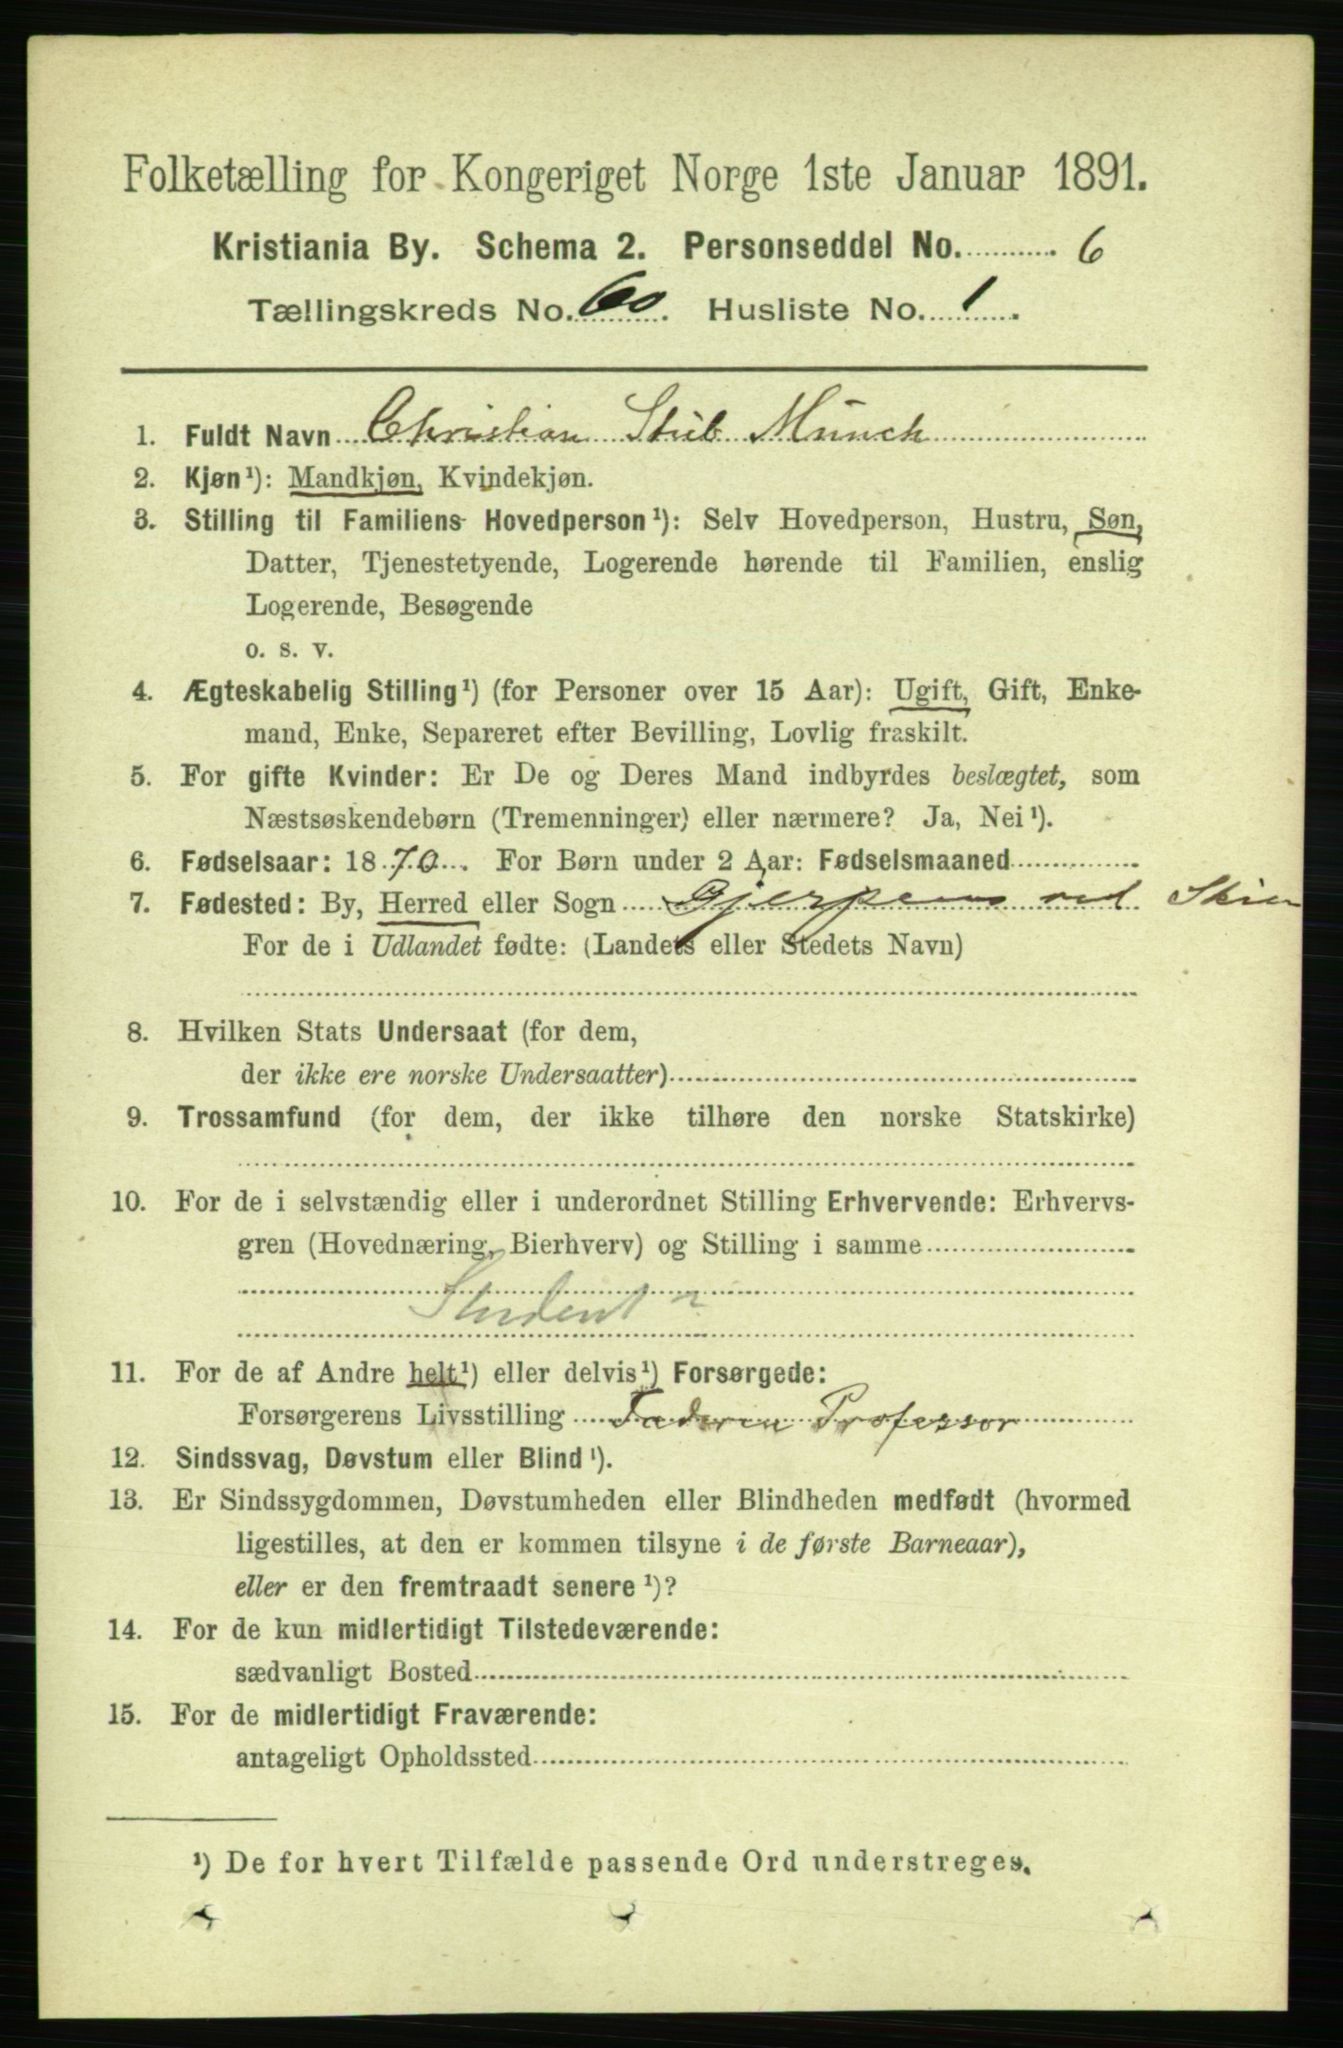 Folketælling for Kongeriget Norge 1ste Januar 1891.
Kristiania By. Schema 2. Personseddel No. 6
Tællingskreds No. 60. Husliste No. 1.
1. Fuldt Navn Christian Stub Munch
2. Kjøn¹): Mandkjøn, Kvindekjøn.
3. Stilling til Familiens Hovedperson¹): Selv Hovedperson, Hustru, Søn,
Datter, Tjenestetyende, Logerende hørende til Familien, enslig
Logerende, Besøgende
o. s. v.
4. Ægteskabelig Stilling¹) (for Personer over 15 Aar): Ugift, Gift, Enke-
mand, Enke, Separeret efter Bevilling, Lovlig fraskilt.
5. For gifte Kvinder: Er De og Deres Mand indbyrdes beslægtet, som
Næstsøskendebørn (Tremenninger) eller nærmere? Ja, Nei¹).
6. Fødselsaar: 1870. For Børn under 2 Aar: Fødselsmaaned
7. Fødested: By, Herred eller Sogn Gjerpen ved Skien
For de i Udlandet fødte: (Landets eller Stedets Navn)
8. Hvilken Stats Undersaat (for dem,
der ikke ere norske Undersaatter)
9. Trossamfund (for dem, der ikke tilhøre den norske Statskirke)
10. For de i selvstændig eller i underordnet Stilling Erhvervende: Erhvervs-
gren (Hovednæring, Bierhverv) og Stilling i samme
Student ?
11. For de af Andre helt¹) eller delvis¹) Forsørgede:
Forsørgerens Livsstilling Faderen Professor
12. Sindssvag, Døvstum eller Blind¹).
13. Er Sindssygdommen, Døvstumheden eller Blindheden medfødt (hvormed
ligestilles, at den er kommen tilsyne i de første Barneaar),
eller er den fremtraadt senere¹)?
14. For de kun midlertidigt Tilstedeværende:
sædvanligt Bosted
15. For de midlertidigt Fraværende:
antageligt Opholdssted
¹) De for hvert Tilfælde passende Ord understreges.